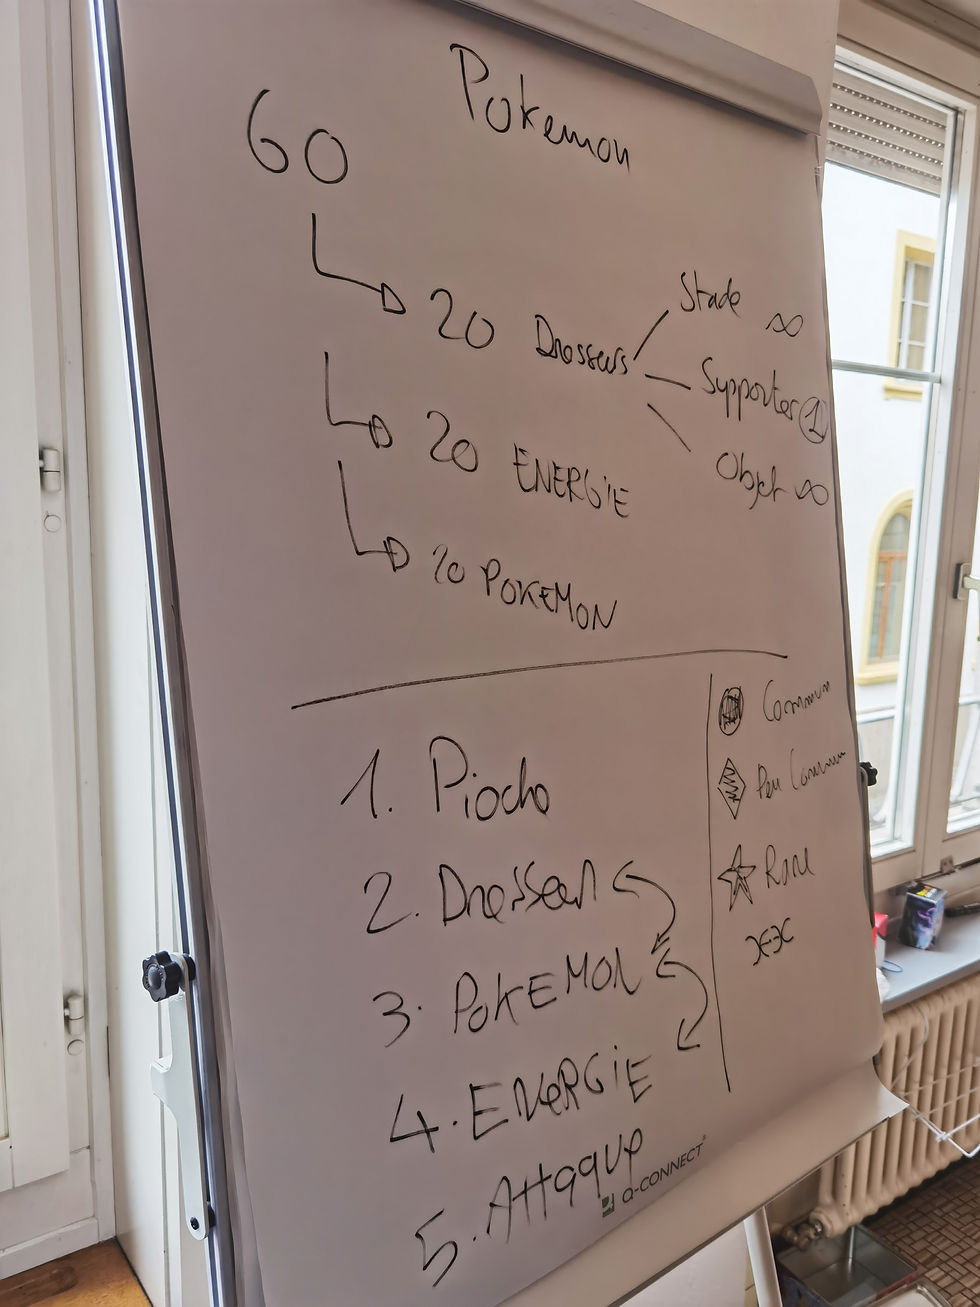 Pokemon
60
20 Dresseurs
Stade ∞
Supporter 1
Objet ∞
20 ENERGiE
20 POKEMON
1. Pioche
2. Dresseur
3. POKEMON
4. ENERGiE
5. Attaque
Commun
Peu Commun
Rare
Q-CONNECT®